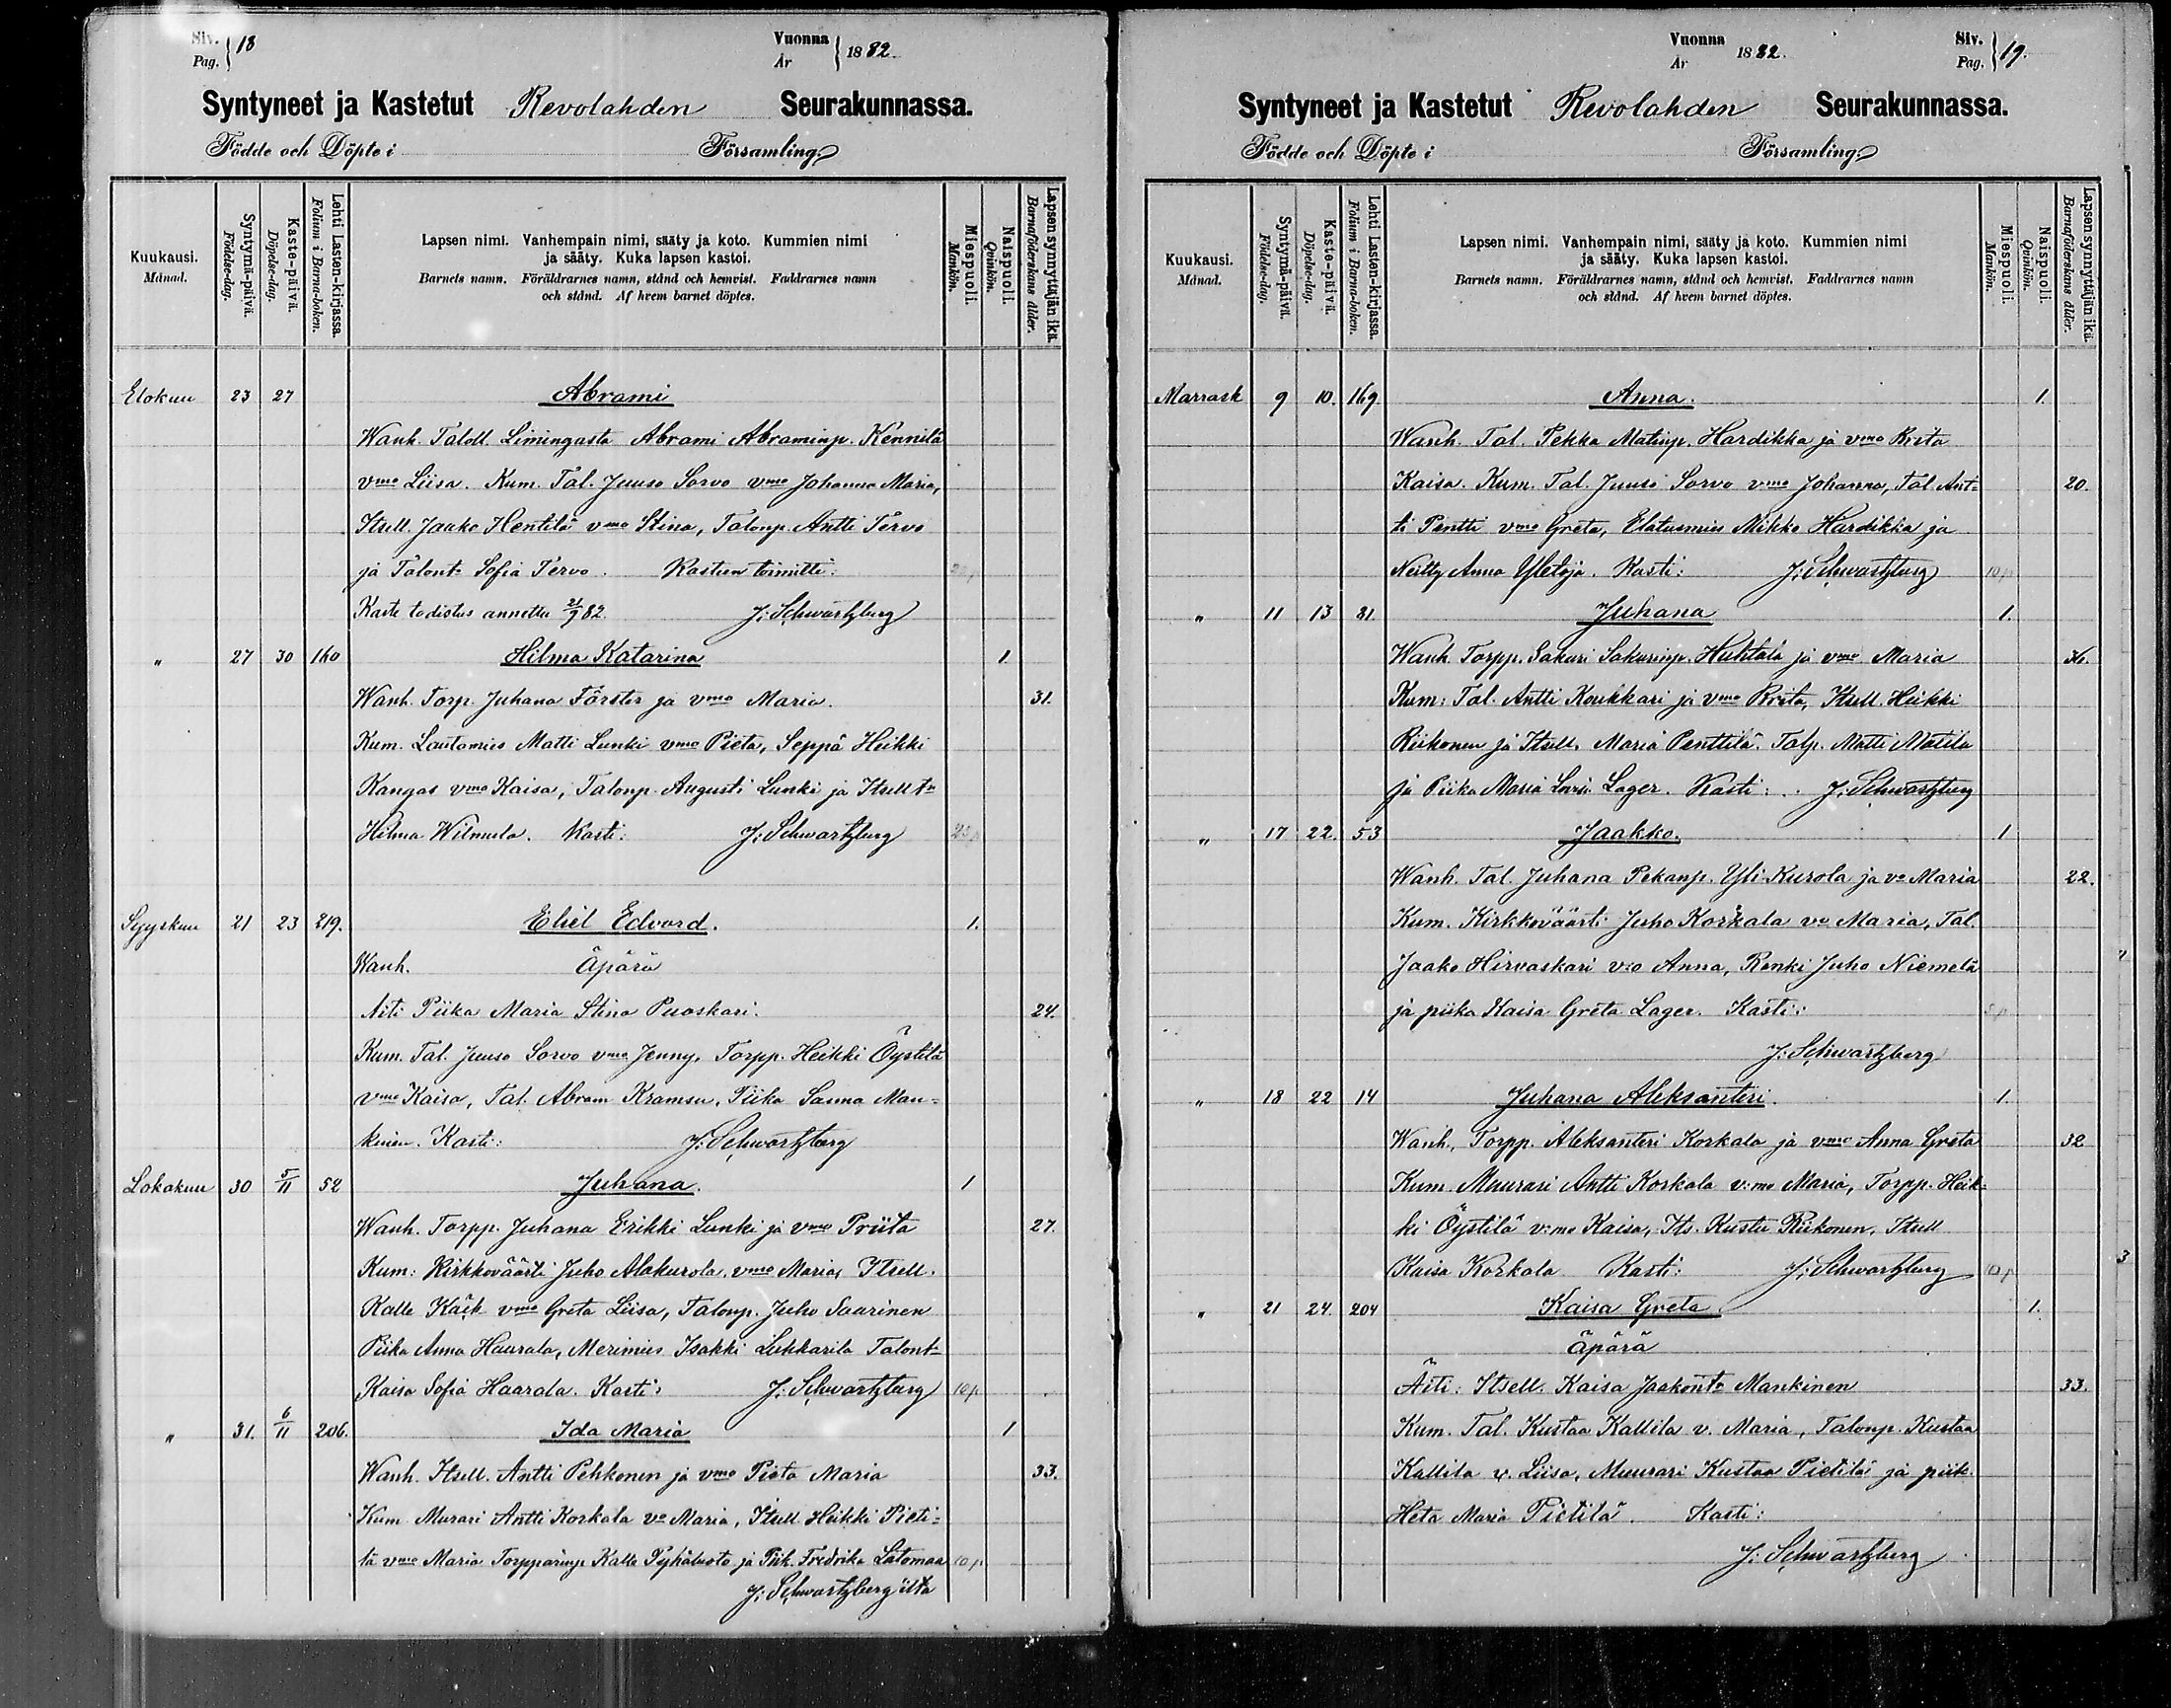 Siv. Pag. 18
Vuonna År 1882.
Syntyneet ja Kastetut Revolahden Seurakunnassa.
Födde och Döpte i Församling
Kuukausi. Månad.
Syntymä-päivä. Födelse-dag.
Kaste-päivä. Döpelse-dag.
Lehti Lasten-kirjassa. Folium i Barna-boken.
Lapsen nimi. Vanhempain nimi, sääty ja koto. Kummien nimi
ja sääty. Kuka lapsen kastoi.
Barnets namn. Föräldrarnes namn, stånd och hemvist. Faddrarnes namn
och stånd. Af hvem barnet döptes.
Miespuoli. Mankön.
Naispuoli. Qvinkön.
Lapsen synnyttäjän ikä. Barnaföderskans ålder.
Elokuu 23 27 Abrami
Wanh. Taloll. Limingasta Abrami Abraminp. Kennilä
vmo Liisa. Kum. Tal. Juuso Sorvo vmo Johanna Maria,
Itsell. Jaako Hentilä vmo Stina, Talonp. Antti Tervo
ja Talont. Sofia Tervo. Kasteen toimitti:
Kaste todistus annettu 21/9 82. J: Schwartzberg
" 27 30 160 Hilma Katarina 1
Wanh. Torp. Juhana Förster ja vmo Maria. 31.
Kum. Lautamies Matti Lunki vmo Pieta, Seppä Heikki
Kangas vmo Kaisa, Talonp. Augusti Lunki ja Itsell tr
Hilma Wilmula. Kasti: J: Schwartzberg
Syyskuu 21 23 219. Eliel Edvard. 1.
Wanh. Äpärä
Äiti Piika Maria Stina Puoskari. 24.
Kum. Tal. Juuso Sorvo vmo Jenny, Torpp. Heikki Öystilä
vmo Kaisa, Tal. Abram Kramsu, Piika Sanna Man=
kinen. Kasti: J: Schwartzberg
Lokakuu 30 5/11 52 Juhana. 1
Wanh. Torpp. Juhana Erikki Lunki ja vmo Priita 27.
Kum: Kirkkoväärti Juho Alakurola, vmo Maria, Itsell.
Kalle Käck vmo Greta Liisa, Talonp. Juho Saarinen
Piika Anna Haurala, Merimies Isakki Lukkarila Talont-
Kaisa Sofia Haarala. Kasti: J: Schwartzberg 10p
" 31. 6/11 206. Ida Maria 1
Wanh. Itsell. Antti Pehkonen ja vmo Pieta Maria 33.
Kum. Murari Antti Korkala vo Maria, Itsell Heikki Pieti=
lä vmo Maria Torpparinp. Kalle Pyhäluoto ja Piik. Fredrika Latomaa 10 p
J: Schwartzberg ilta
Vuonna År 1882.
Siv. Pag. 19.
Syntyneet ja Kastetut Revolahden Seurakunnassa.
Födde och Döpte i Församling
Kuukausi. Månad.
Syntymä-päivä. Födelse-dag.
Kaste-päivä. Döpelse-dag.
Lehti Lasten-kirjassa. Folium i Barna-boken.
Lapsen nimi. Vanhempain nimi, sääty ja koto. Kummien nimi
ja sääty. Kuka lapsen kastoi.
Barnets namn. Föräldrarnes namn, stånd och hemvist. Faddrarnes namn
och stånd. Af hvem barnet döptes.
Miespuoli. Mankön.
Naispuoli. Qvinkön.
Lapsen synnyttäjän ikä. Barnaföderskans ålder.
Marrask 9 10. 169. Anna. 1.
Wanh. Tal. Pekka Matinp. Hardikka ja vmo Brita
Kaisa. Kum. Tal. Juuso Sorvo vmo Johanna, Tal. Ant= 20.
ti Pentti vmo Greta, Elatusmies Mikko Hardikka ja
Neitty Anna Yletoja. Kasti: J: Schwartzberg 10p
" 11 13 81. Juhana 1.
Wanh. Torpp. Sakari Sakarinp. Huhtala ja vmo Maria 36.
Kum: Tal. Antti Koukkari ja vmo Brita, Itsell. Heikki
Riikonen ja Itsell. Maria Penttilä. Talp. Matti Matila
ja Piika Maria Lovis. Lager. Kasti: J: Schwartzberg
" 17 22. 53 Jaakko. 1
Wanh. Tal. Juhana Pekanp. Yli-Kurola ja vo Maria 22.
Kum. Kirkkoväärti Juho Korkala vo Maria, Tal.
Jaako Hirvaskari v:o Anna, Renki Juho Niemelä
ja piika Kaisa Greta Lager. Kasti:
J: Schwartzberg
" 18 22 14 Juhana Aleksanteri. 1.
Wanh. Torpp. Aleksanteri Korkala ja vmo Anna Greta 32
Kum. Muurari Antti Korkala v:mo Maria, Torpp. Heik=
ki Öystilä v:mo Kaisa, Its. Kustu Riikonen, Itsell
Kaisa Korkala Kasti: J: Schwartzberg 10p
" 21 24. 204 Kaisa Greta 1.
Äpärä
Äiti: Itsell. Kaisa Jaakontr Mankinen 33.
Kum. Tal. Kustaa Kallila v. Maria, Talonp. Kustaa
Kallila v. Liisa, Muurari Kustaa Pietilä ja piik.
Heta Maria Pietilä. Kasti:
J: Schwartzberg